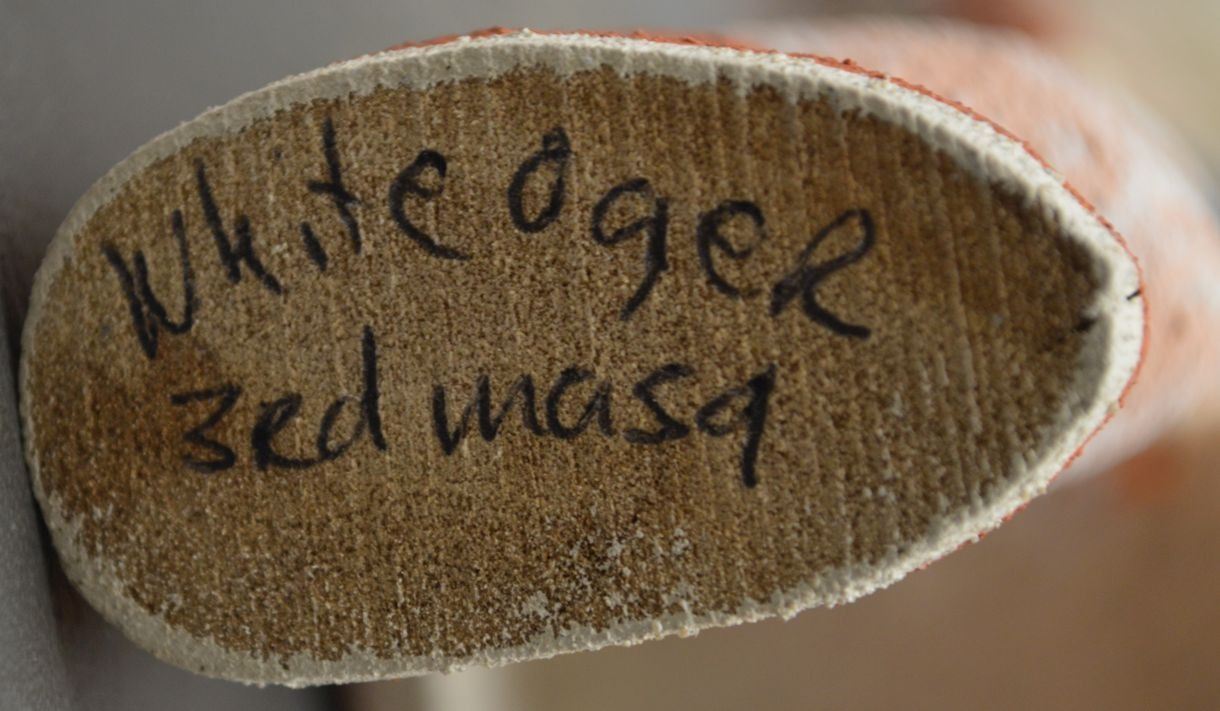 White Oger
3rd masq